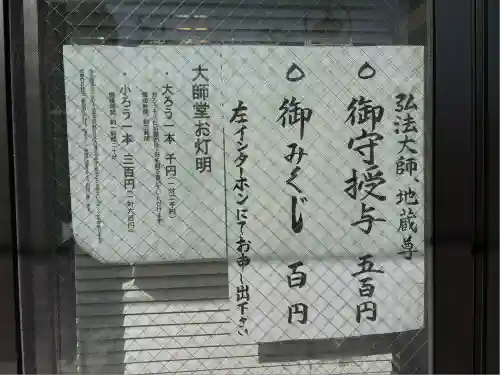 弘法大師、地蔵尊
○御守授与 五百円
○御みくじ 百円
左インターホンにてお申し出下さい
大師堂お灯明
・大ろう一本 千円(一対二千円)
・小ろう一本 三百円(一対六百円)